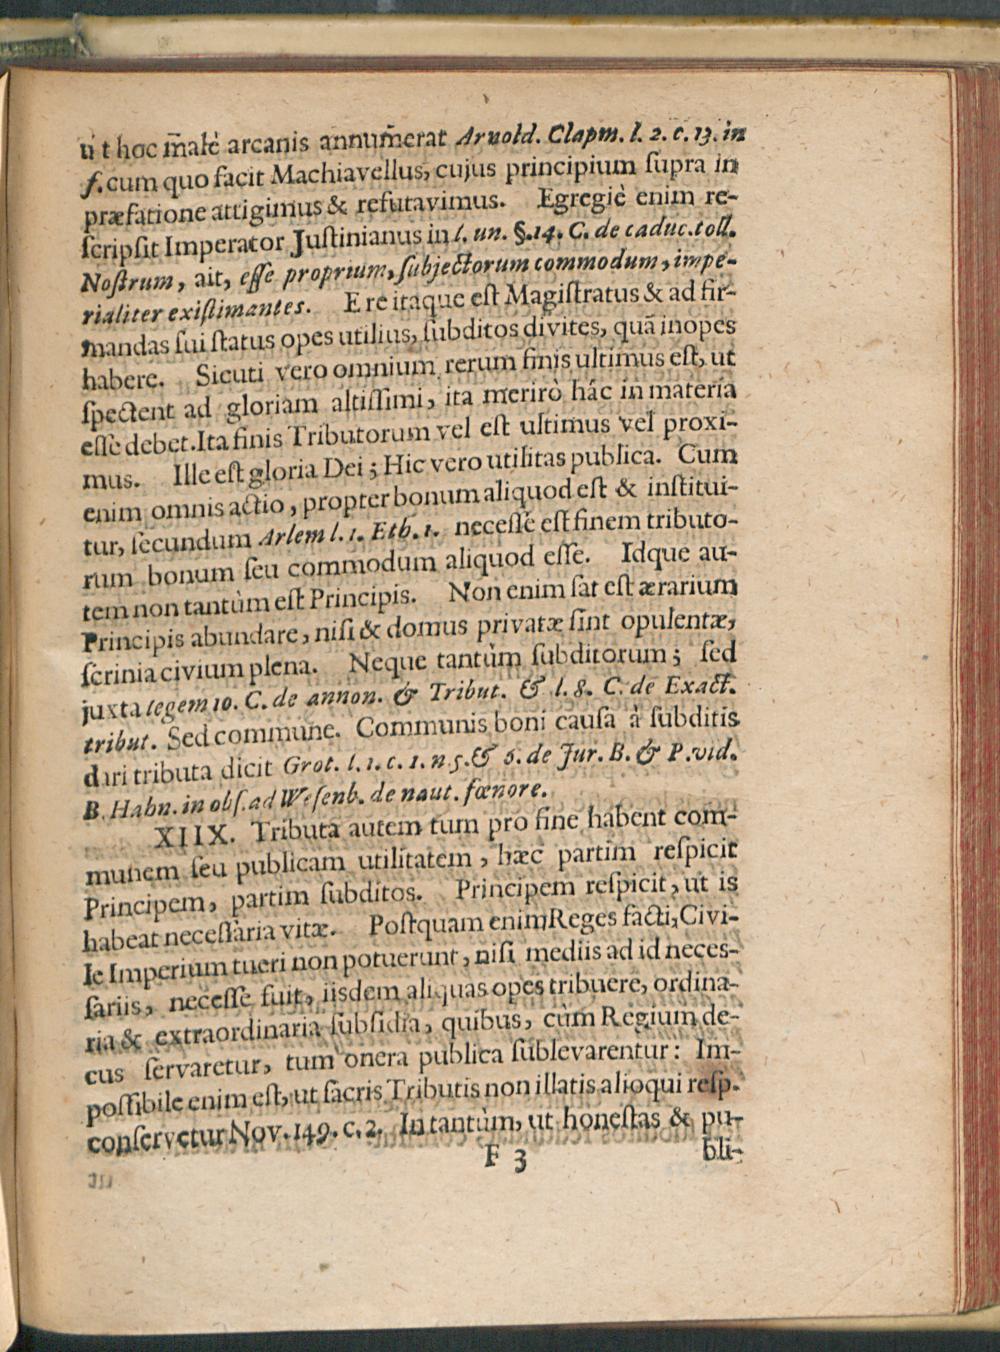 ut hoc m̃alè arcanis annum̃erat Arnold. Clapm. l. 2. c. 13. in
f. cum quo facit Machiavellus, cujus principium ſupra in
præfatione attigimus & refutavimus. Egregiè enim re-
ſcripſit Imperator Juſtinianus in l. un. §. 14. C. de caduc. toll.
Noſtrum, ait, eſſe proprium, ſubjectorum commodum, impe-
rialiter exiſtimantes. E re itaque eſt Magiſtratus & ad fir-
mandas ſui ſtatus opes utilius, ſubditos divites, quã inopes
habere. Sicuti vero omnium rerum finis ultimus eſt, ut
ſpectent ad gloriam altiſſimi, ita meritò hâc in materia
eſſe debet. Ita finis Tributorum vel eſt ultimus vel proxi-
mus. Ille eſt gloria Dei; Hic vero utilitas publica. Cum
enim omnis actio, propter bonum aliquod eſt & inſtitui-
tur, ſecundum Arlem l. 1. Eth. 1. neceſſe eſt finem tributo-
rum bonum ſeu commodum aliquod eſſe. Idque au-
tem non tantùm eſt Principis. Non enim ſat eſt ærarium
Principis abundare, niſi & domus privatæ ſint opulentæ,
ſcrinia civium plena. Neque tantùm ſubditorum; ſed
juxta legem 10. C. de annon. & Tribut. & l. 8. C. de Exact.
tribut. Sed commune. Communis boni cauſa à ſubditis
dari tributa dicit Grot. l. 1. c. 1. n 5. & 6. de Jur. B. & P. vid.
B. Hahn. in obſ. ad Weſenb. de naut. fœnore.
XIIX. Tributa autem tum pro fine habent com-
munem ſeu publicam utilitatem, hæc partim reſpicit
Principem, partim ſubditos. Principem reſpicit, ut is
habeat neceſſaria vitæ. Poſtquam enim Reges facti, Civi-
le Imperium tueri non potuerunt, niſi mediis ad id neces-
ſariis, neceſſe fuit, iisdem aliquas opes tribuere, ordina-
ria & extraordinaria ſubſidia, quibus, cùm Regium de-
cus ſervaretur, tum onera publica ſublevarentur: Im-
poſſibile enim eſt, ut ſacris Tributis non illatis alioqui reſp.
conſervetur Nov. 149. c. 2. In tantùm, ut honeſtas & pu-
F 3
bli-